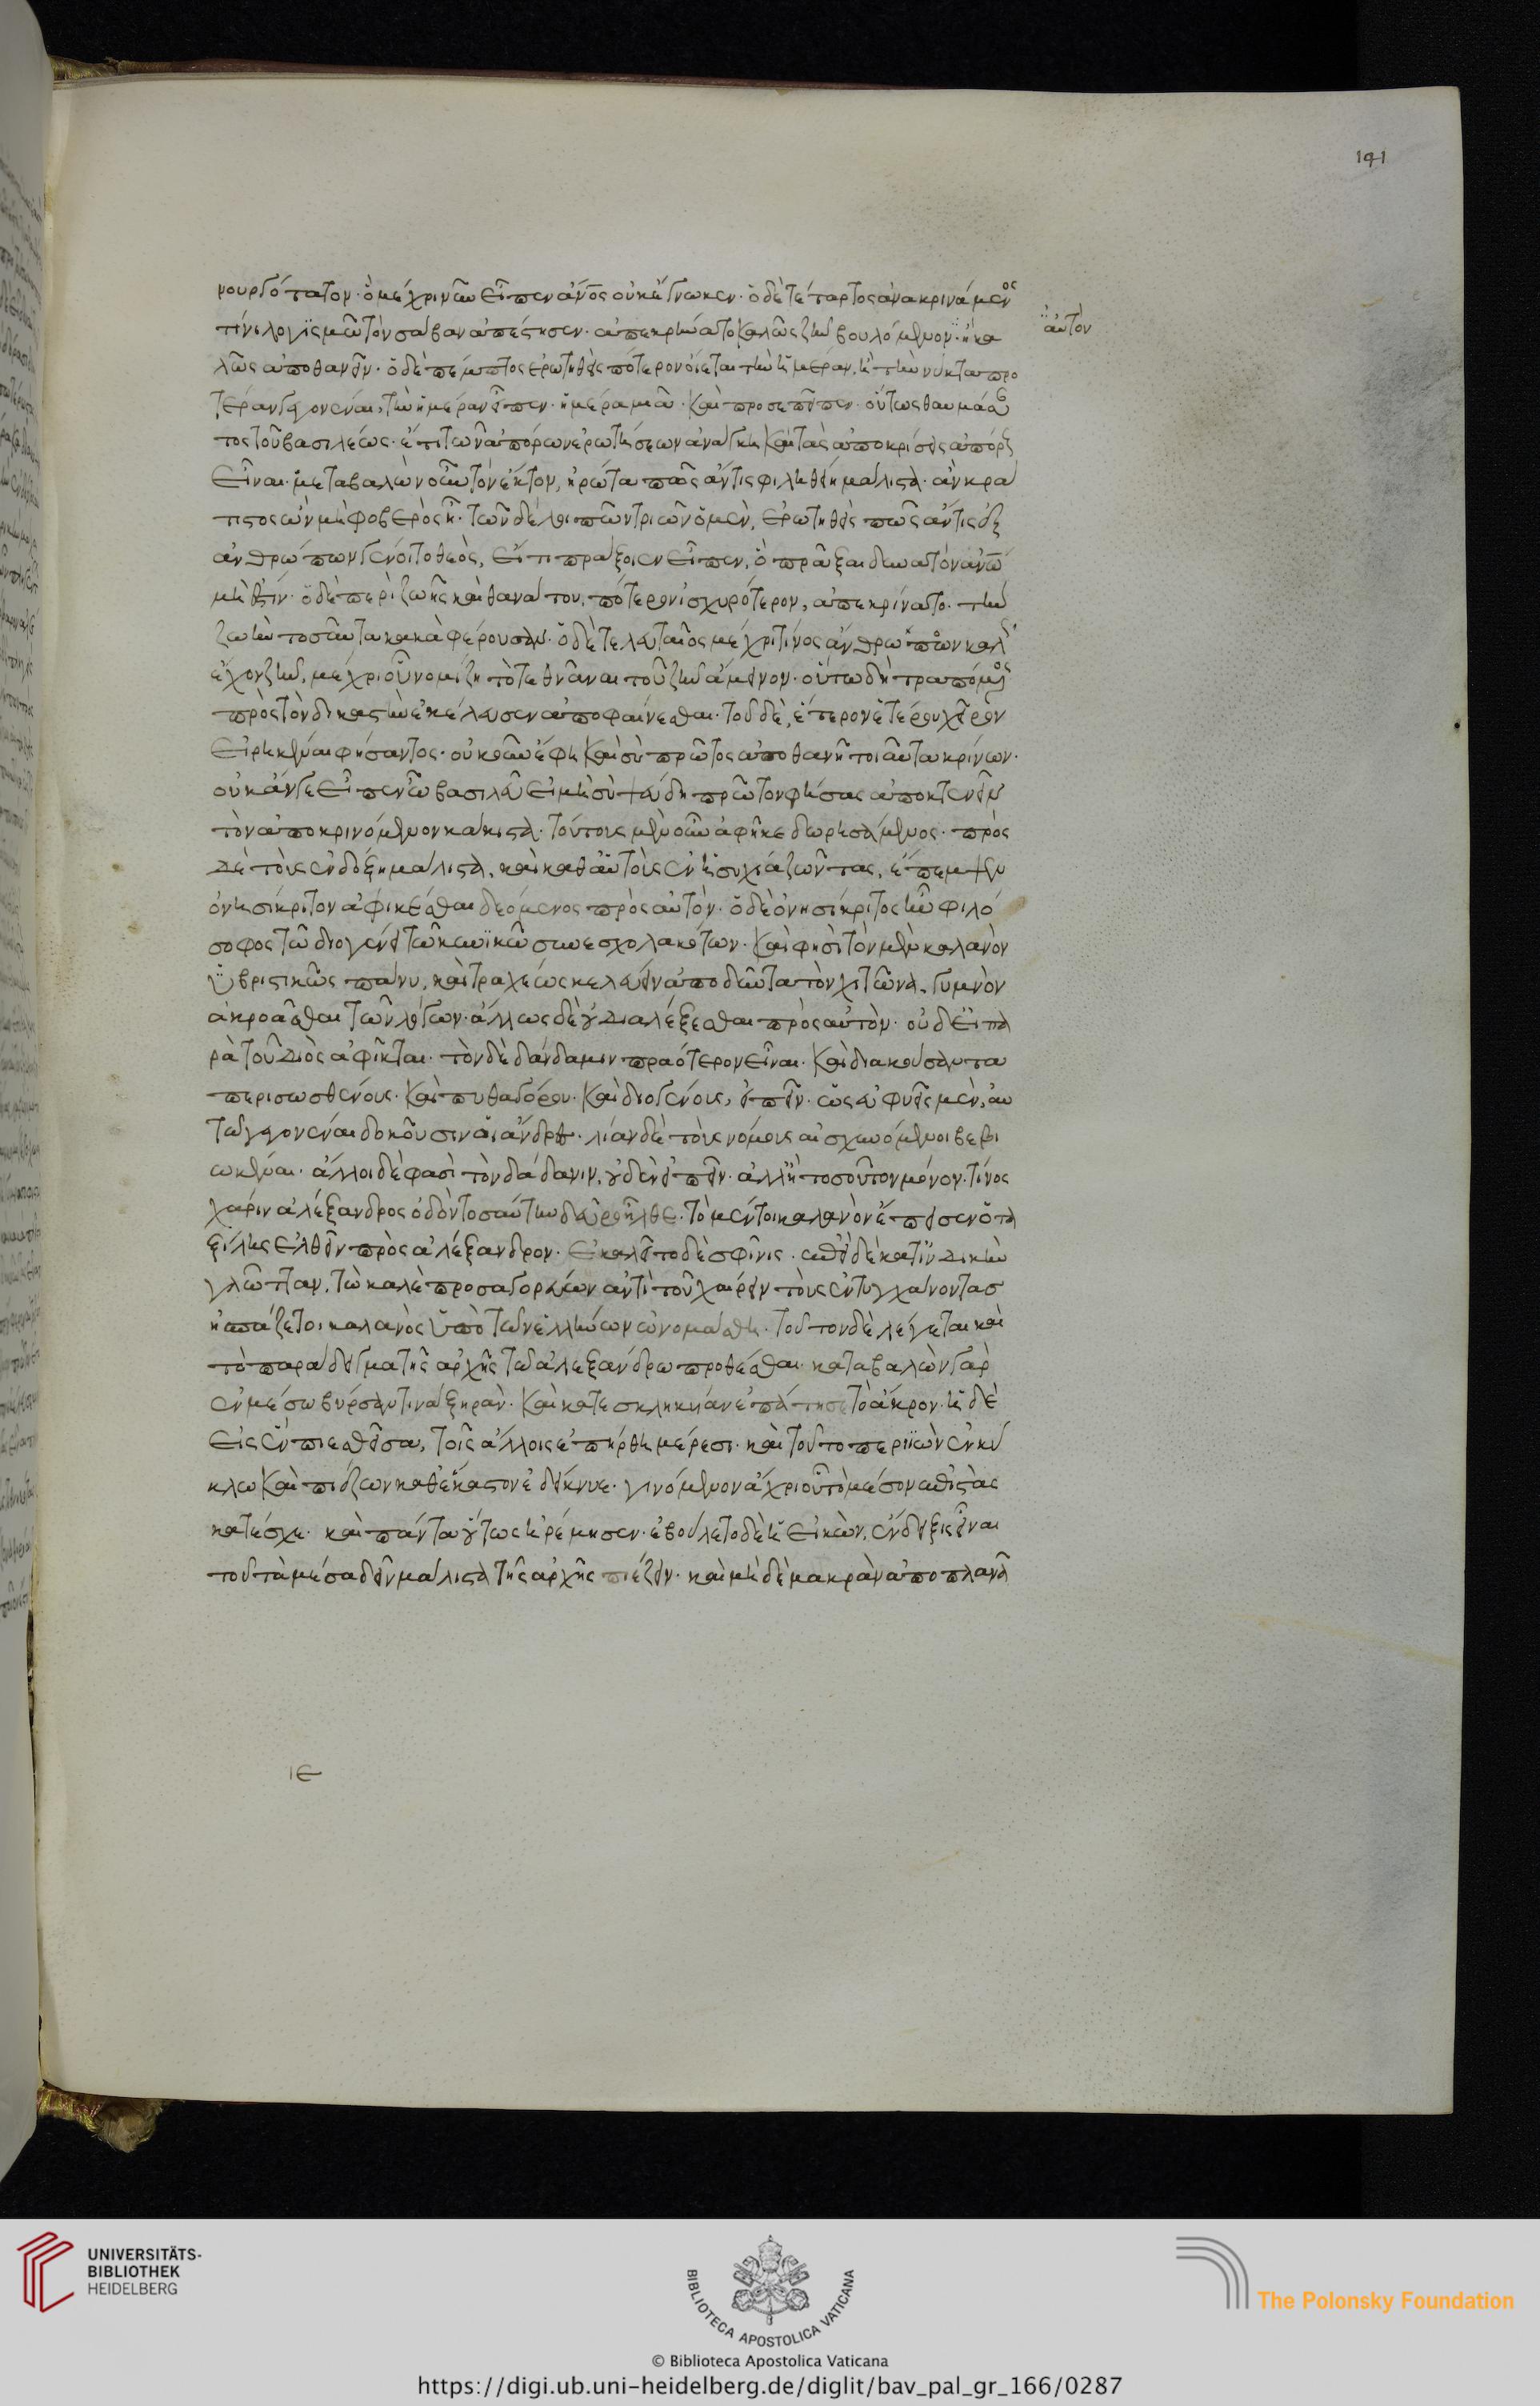 141
νουργότατον· ὃ μέχρι νῦν εἶπεν ἄνος οὐκ ἔγνωκεν· ὁ δὲ τέταρτος ἀνακρινόμενος
τίνι λογισμῶ τὸν σάβαν ἀπέστησεν· ἀπεκρίνατο καλῶς ζῆν βουλόμενον ἢ κα
αὐτὸν
λῶς ἀποθανεῖν· ὁ δὲ πέμπτος ἐρωτηθεὶς πότερον οἴεται τὴν ἡμέραν, ἢ τὴν νύκτα προ
τέραν γεγονέναι, τὴν ἡμέραν εἶπεν· ἡμέρα μιᾶ· καὶ προσεπεῖπεν· οὕτως θαυμάσαν
τος τοῦ βασιλέως· ἔτι τῶν ἀπόρων ἐρωτήσεων ἀνάγκη καὶ τὰς ἀποκρίσεις ἀπόρους
εἶναι· μεταβαλὼν οὖν τὸν ἕκτον, ἠρώτα πῶς ἄν τις φιληθείη μάλιστα· ἂν κρά
τιστος ὢν μὴ φοβερὸς ἦ· τῶν δὲ λοιπῶν τριῶν ὁ μὲν, ἐρωτηθεὶς πῶς ἄν τις ἐξ
ἀνθρώπων γένοιτο θεὸς, εἴ τι πράξοιεν εἶπεν, ὃ πρᾶξαι δυνατὸν ἀνῶ
μή ἐστιν· ὁ δὲ περὶ ζωῆς καὶ θανάτου, πότερον ἰσχυρότερον, ἀπεκρίνατο· τὴν
ζωὴν τοσαῦτα κακὰ φέρουσαν· ὁ δὲ τελευταῖος μέχρι τίνος ἄνθρωπον καλῶς
ἔχον ζῆν, μέχρι οὗ νομίζη τὸ τεθνᾶναι τοῦ ζῆν ἄμεινον· οὕτω δὴ τραπόμενος
πρὸς τὸν δικαστὴν ἐκέλευσεν ἀποφαίνεσθαι· τοῦ δὲ, ἕτερον ἑτέρου χεῖρον
εἰρηκέναι φήσαντος· οὐκοῦν ἔφη καὶ σὺ πρῶτος ἀποθανῆ τοιαῦτα κρίνων·
οὐκ ἄν γε εἶπεν ὦ βασιλεῦ εἰ μὴ σὺ ψεύδη πρῶτον φήσας ἀποκτενεῖν
τὸν ἀποκρινόμενον κάκιστα· τούτους μὲν οὖν ἀφῆκε δωρησάμενος· πρὸς
δὲ τοὺς ἐν δόξη μάλιστα, καὶ καθ' αὑτοὺς ἐν ἡσυχία ζῶντας, ἔπεμψεν
ὀνησίκριτον ἀφικέσθαι δεόμενος πρὸς αὐτὸν· ὁ δὲ ὀνησίκριτος ἦν φιλό
σοφος τῶν διογένει τῶ κυνικῶ συνεσχολακότων· καὶ φησὶ τὸν μὲν καλανὸν
ὑβριστικῶς πάνυ, καὶ τραχέως κελεύειν ἀποδύντα τὸν χιτῶνα, γυμνὸν
ἀκροᾶσθαι τῶν λόγων· ἄλλως δὲ οὐ διαλέξεσθαι πρὸς αὐτὸν· οὐδ' εἰ πα
ρὰ τοῦ διὸς ἀφῖκται· τὸν δὲ δάνδαμιν πραότερον εἶναι· καὶ διακούσαντα
περι σωσθένους· καὶ πυθαγόρου· καὶ διογένους, εἰπεῖν· ὡς εὐφυεῖς μὲν, αὐ
τῶ γεγονέναι δοκοῦσιν οἱ ἄνδρες· λίαν δὲ τοὺς νόμους αἰσχυνόμενοι βεβι
ωκέναι· ἄλλοι δέ φασὶ τὸν δάδανιν, οὐδὲν εἰπεῖν· ἀλλ' ἢ τοσοῦτον μόνον· τίνος
χάριν ἀλέξανδρος ὁδὸν τοσαύτην δεῦρο ἦλθε· τὸ μέντοι καλανὸν ἔπεισεν ὁ τα
ξίλης ἐλθεῖν πρὸς ἀλέξανδρον· ἐκαλεῖτο δὲ σφίνις· ἐπεὶ δὲ κατ' ἰνδικὴν
γλῶτταν, τὸ καλὲ προσαγορεύων ἀντὶ τοῦ χαίρειν τοὺς ἐντυγχάνοντας
ἠσπάζετο, καλανὸς ὑπὸ τῶν ἑλλήνων ὠνομάσθη· τοῦτον δὲ λέγεται καὶ
τὸ παράδειγμα τῆς ἀρχῆς τῶ ἀλεξάνδρω προθέσθαι· καταβαλὼν γὰρ
ἐν μέσω βύρσαν τινὰ ξηρὰν· καὶ κατεσκληκυῖαν ἐπάτησε τὸ ἄκρον· ἡ δὲ
εἰς ἓν πιεσθεῖσα, τοῖς ἄλλοις ἐπήρθη μέρεσι· καὶ τοῦτο περιϊὼν ἐν κύ
κλω καὶ πιέζων καθ' ἕκαστον ἐδείκνυε· γινόμενον ἄχρι οὗ τὸ μέσον ἐπιστὰς
κατέσχε· καὶ πάντα οὕτως ἠρέμησεν· ἐβούλετο δὲ ἡ εἰκὼν, ἔνδειξις εἶναι
τοῦ τὰ μέσα δεῖν μάλιστα τῆς ἀρχῆς πιέζειν· καὶ μὴ δὲ μακρὰν ἀποπλανᾶ
ιε
UNIVERSITÄTS-
BIBLIOTHEK
HEIDELBERG
BIBLIOTECA APOSTOLICA VATICANA
The Polonsky Foundation
© Biblioteca Apostolica Vaticana
https://digi.ub.uni-heidelberg.de/diglit/bav_pal_gr_166/0287